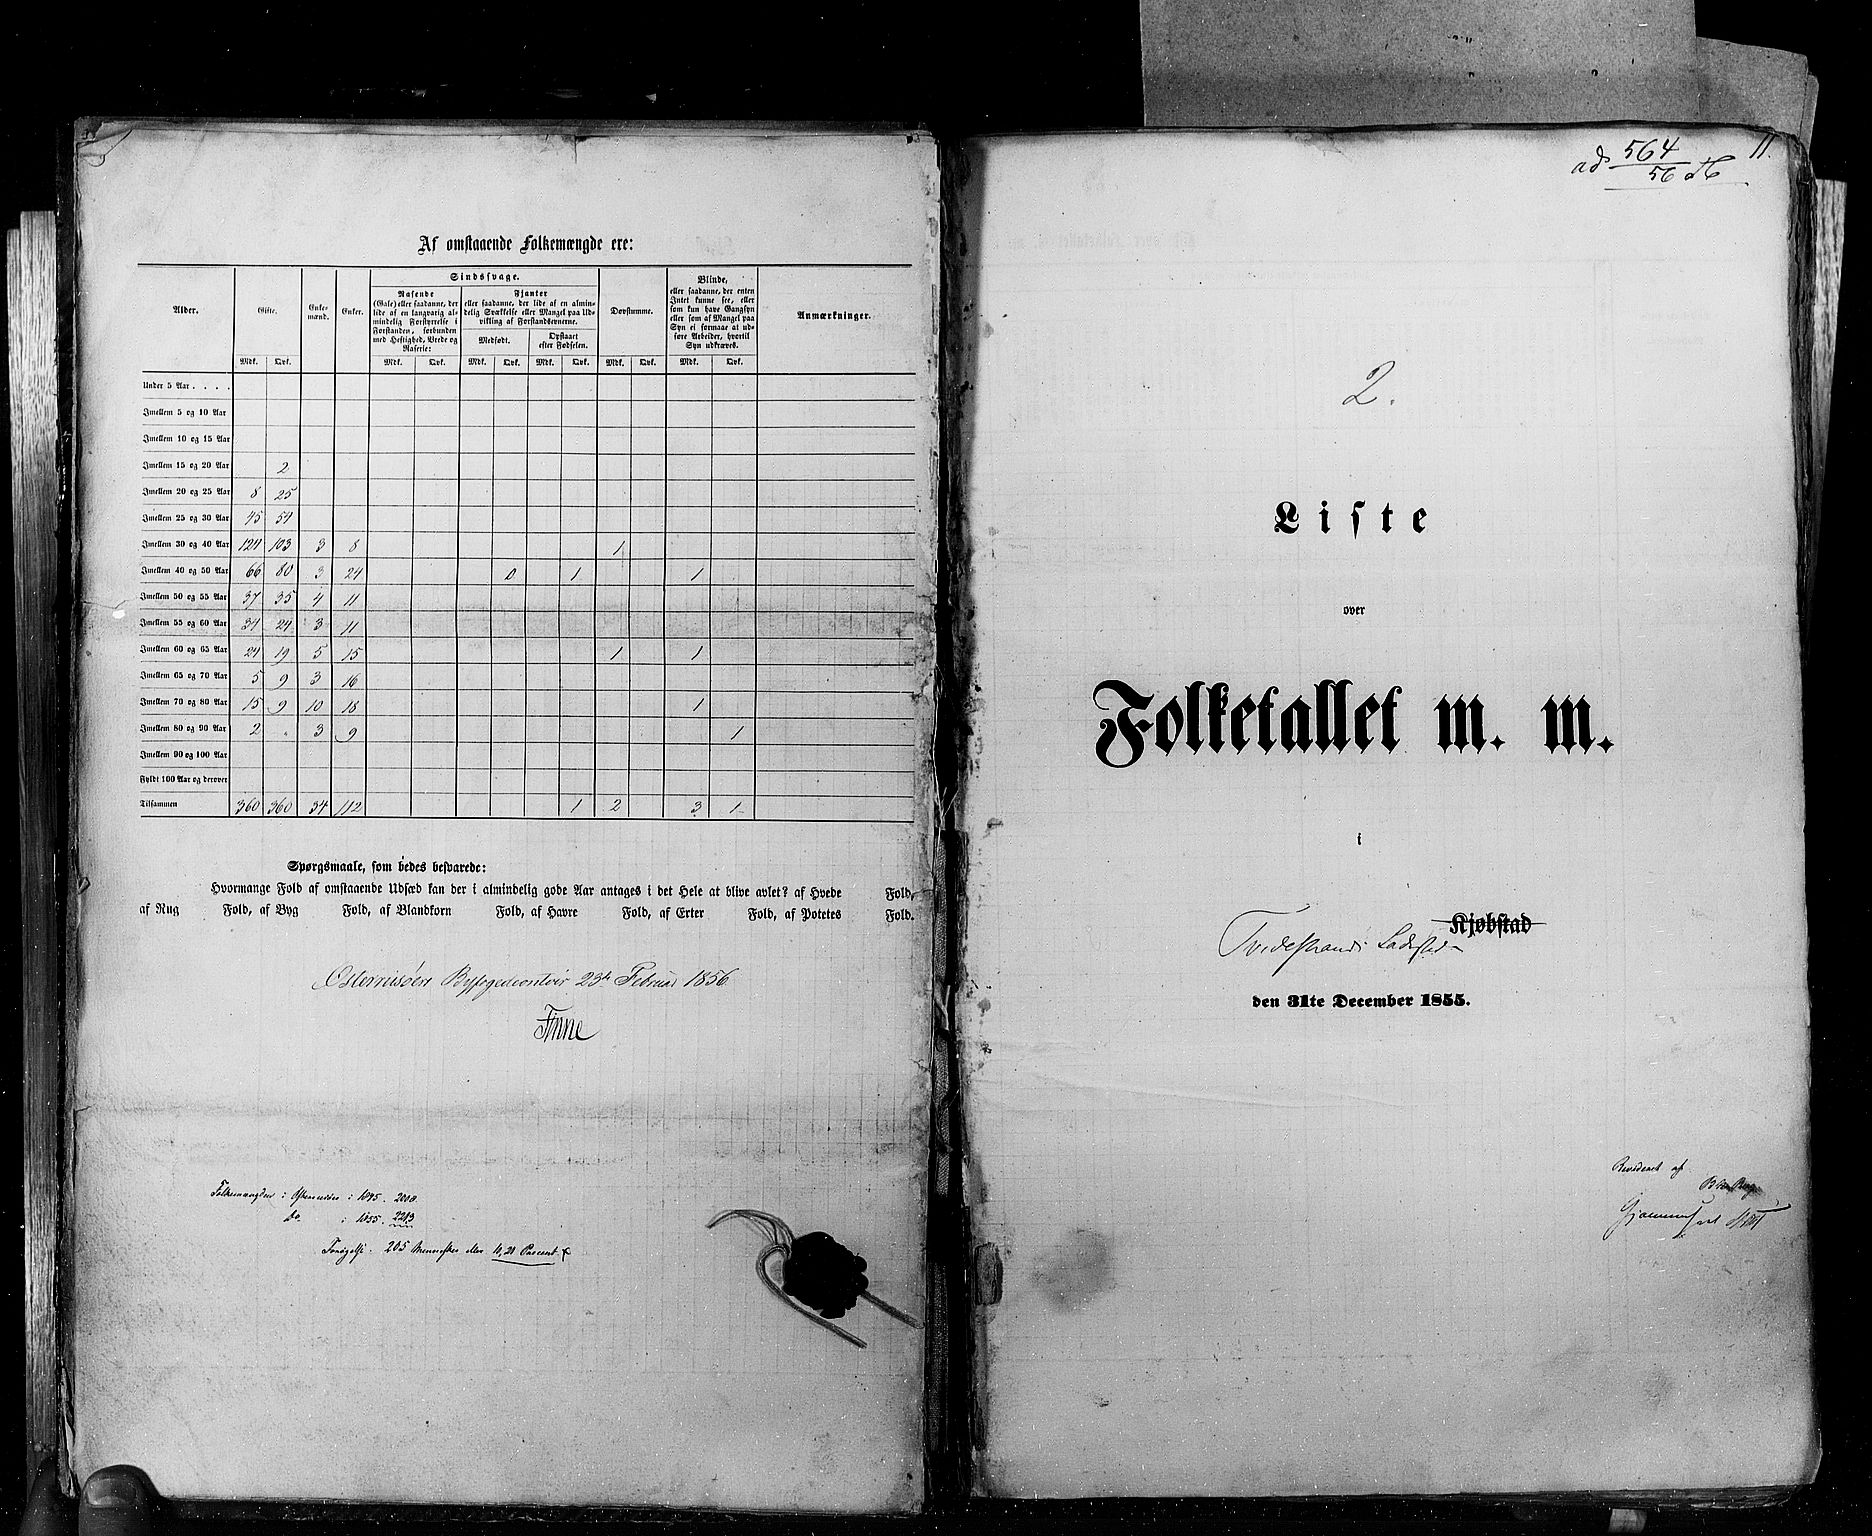 Af omstaaende Folkemængde ere:
Alder. Gifte. Enke-mænd. Enker. Sindssvage. Døvstumme. Blinde, eller saadanne, der enten Intet kunne see, eller som kun have Gangsyn eller som af Mangel paa Syn ei formaae at udføre Arbeider, hvortil Syn udkræves. Anmærkninger.
Rasende (Gale) eller saadanne, der lide af en langvarig almindelig Forstyrrelse i Forstanden, forbunden med Heftighed, Vrede og Raserie:
Fjanter eller saadanne, der lide af en almindelig Svækkelse eller Mangel paa Udvikling af Forstandsevnerne.
Medfødt. Opstaaet efter Fødselen.
Mdk. Qvk. Mdk. Qvk. Mdk. Qvk. Mdk. Qvk. Mdk. Qvk. Mdk. Qvk.
Under 5 Aar . . . .
Imellem 5 og 10 Aar
Imellem 10 og 15 Aar
Imellem 15 og 20 Aar 2
Imellem 20 og 25 Aar 8 25
Imellem 25 og 30 Aar 45 54
Imellem 30 og 40 Aar 124 103 3 8 1
Imellem 40 og 50 Aar 66 80 3 24 0 1 1
Imellem 50 og 55 Aar 37 35 4 11
Imellem 55 og 60 Aar 34 24 3 11
Imellem 60 og 65 Aar 24 19 5 15 1 1
Imellem 65 og 70 Aar 5 9 3 16
Imellem 70 og 80 Aar 15 9 10 18 1
Imellem 80 og 90 Aar 2 " 3 9 1
Imellem 90 og 100 Aar
Fyldt 100 Aar og derover
Tilsammen 360 360 34 112 1 2 3 1
Spørgsmaale, som bedes besvarede:
Hvormange Fold af omstaaende Udsæd kan der i almindelig gode Aar antages i det Hele at blive avlet? af Hvede Fold,
af Rug Fold, af Byg Fold, af Blandkorn Fold, af Havre Fold, af Erter Fold, af Potetes Fold.
Østerriisøers Byfogedcontoir 23de Februar 1856
Finne
Folkemængden i Østerriisøer i 1845. 2008.
do. i 1855. 2213
Forøgelse. 205 Mennesker eller 10,21 Procent
ad 564 11.
56
2.
Liste
over
Folketallet m. m.
i
Kjøbstad
Tvedestrands Ladested
den 31te December 1855.
Revideret af